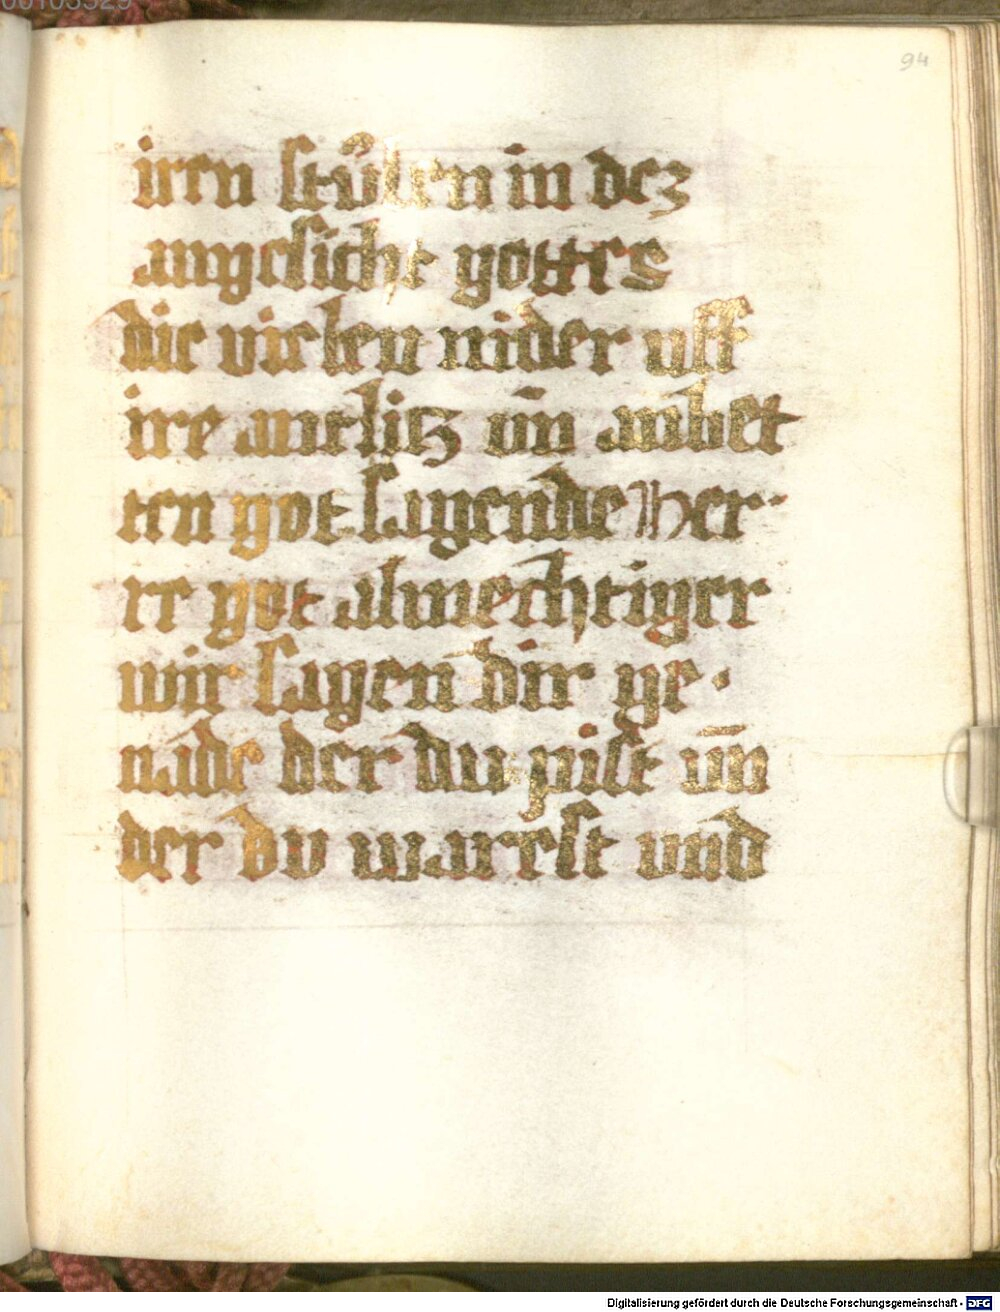 94
iren stůlen in dez
angesicht gottes
die vielen nider uff
ire antlitz un̄ anbet
ten got sagende Her·
re got almechtiger
wir sagen dir ge·
nade der du pist un̄
der du warest und
Digitalisierung gefördert durch die Deutsche Forschungsgemeinschaft - DFG